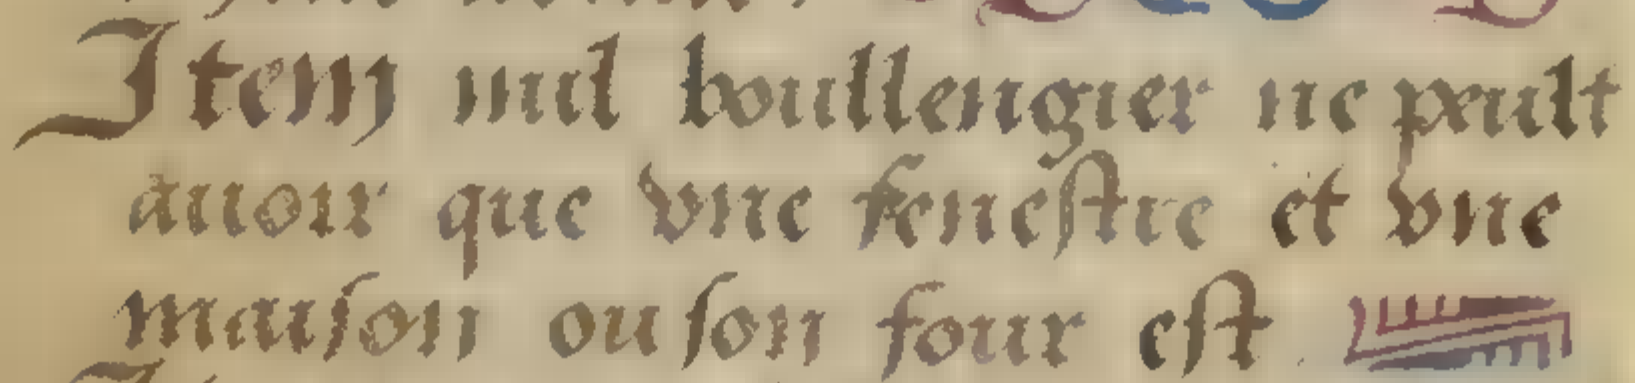 Item nul boullengier ne peult
auoir que vne fenestre et vne
maison ou son four est